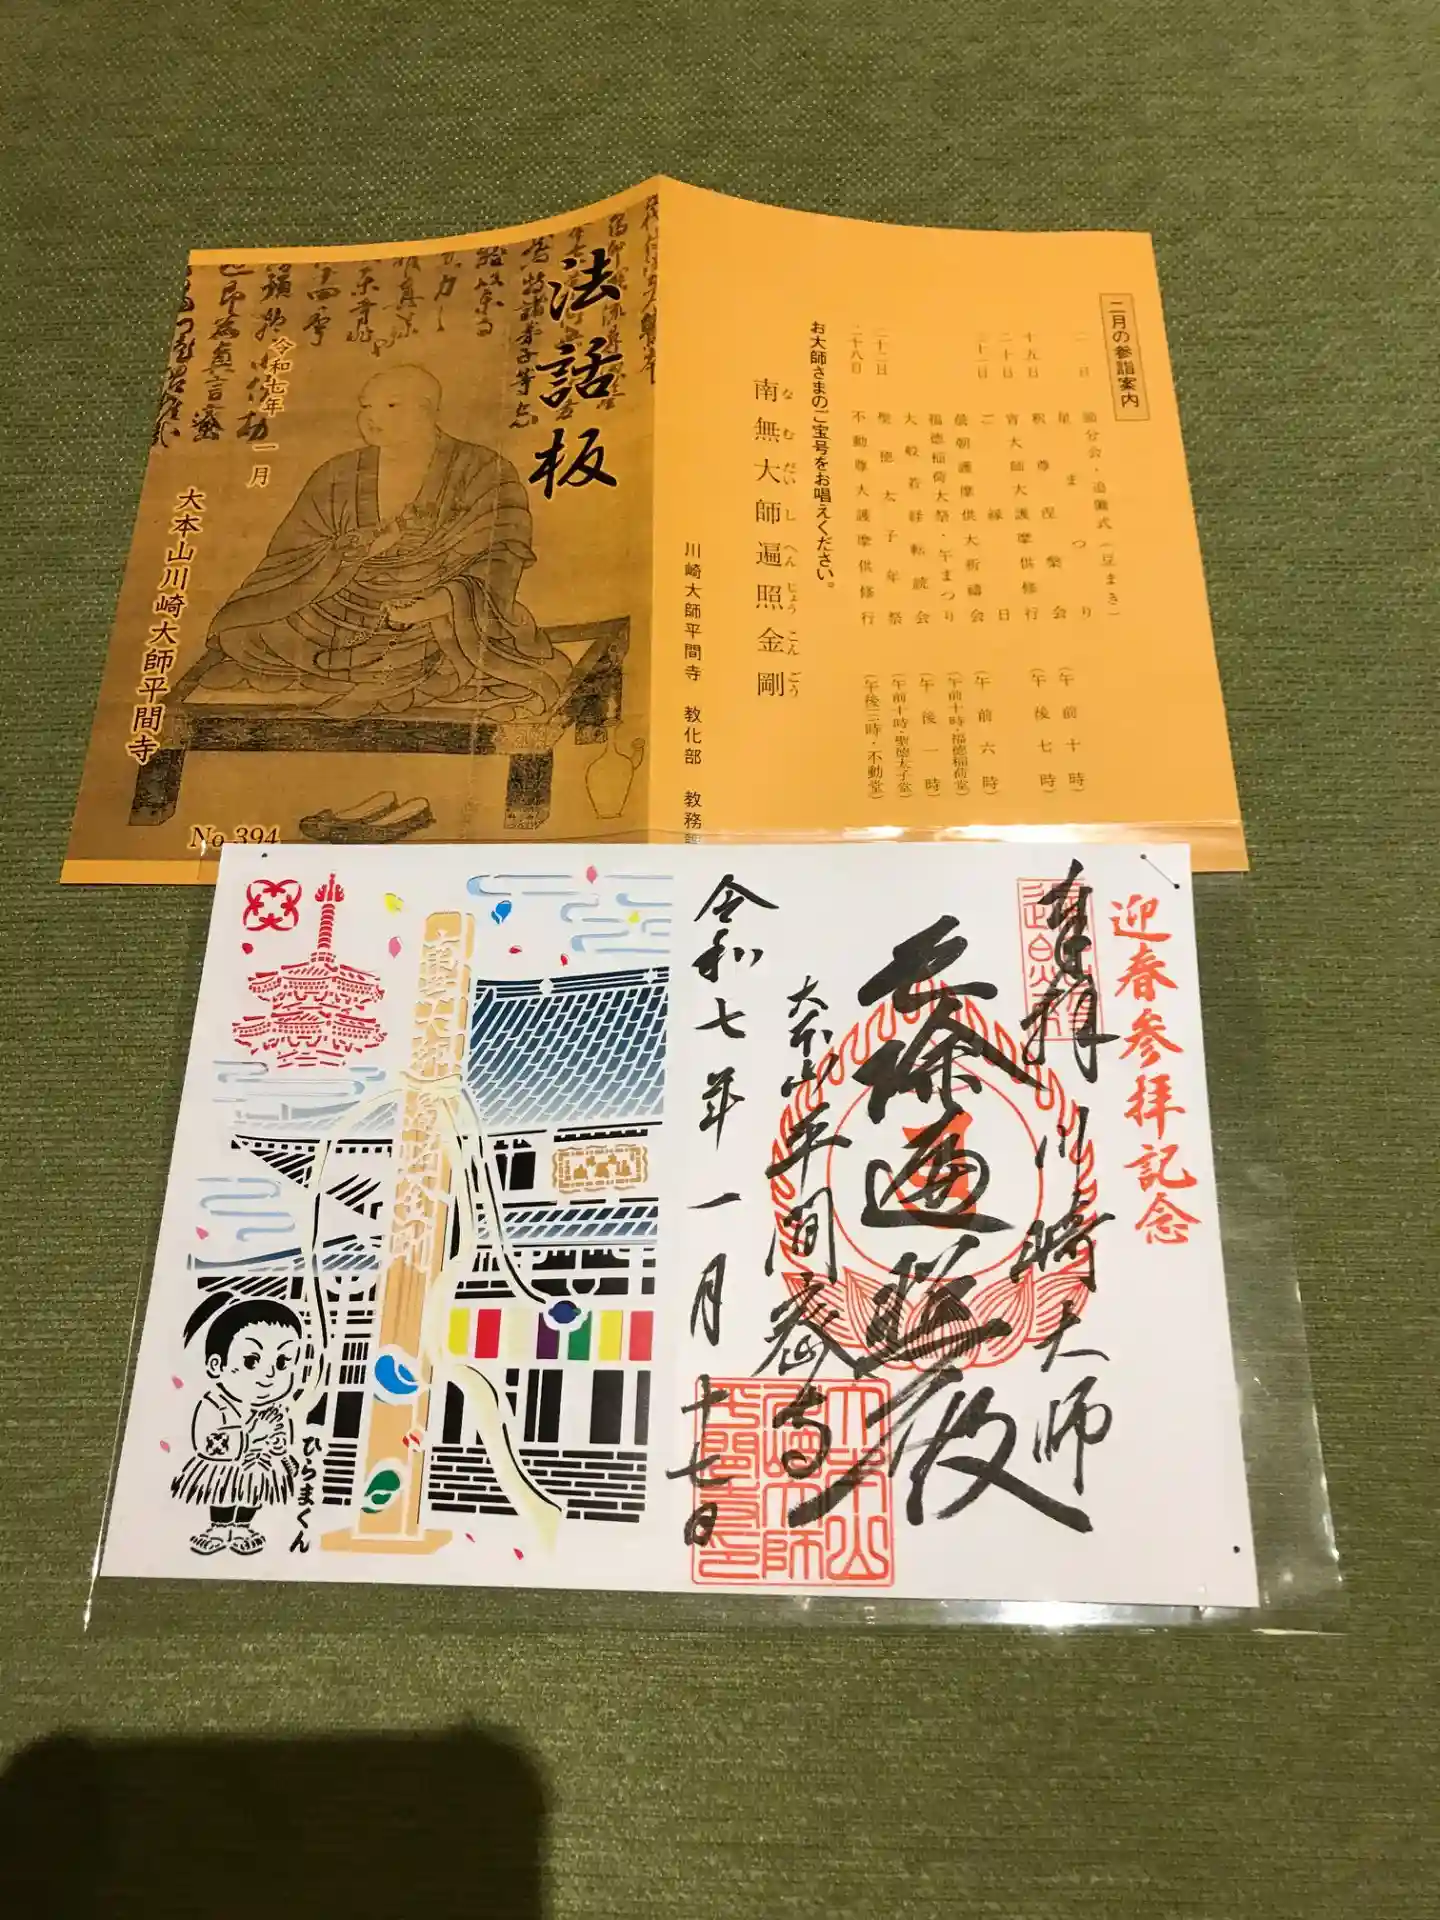 法話板
令和七年一月
大本山川崎大師平間寺
No 394
二月の参詣案内
節分会・追儺式(豆まき)
星まつり
釈尊涅槃会
宵大師大護摩供修行
ご縁日
福徳稲荷大祭・午まつり
大般若経転読会
聖徳太子年祭
不動尊大護摩供修行
十九日
二十日
二十一日
二十二日
二十八日
(午前十時)
(午後七時)
(午前六時)
(午前十時・福徳稲荷堂)
(午後一時)
(午前十時・聖徳太子堂)
(午後三時・不動堂)
お大師さまのご宝号をお唱えください。
南無大師遍照金剛
なむだいしへんじょうこんごう
川崎大師平間寺 教化部 教務
迎春参拝記念
奉拝 川崎大師
大本山平間密寺
令和七年一月十七日
ひらまくん